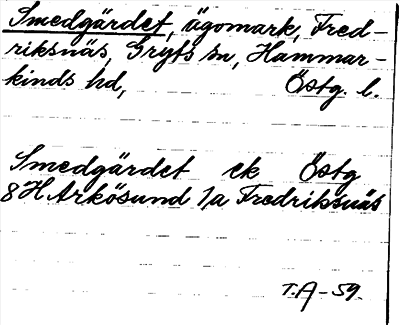 Smedgärdet, ägomark, Fred-
riksnäs, Gryts sn, Hammar-
kinds hd, Östg. l.
Smedgärdet ek Östg
8H Arkösund 1a Fredriksnäs
T.A-59.